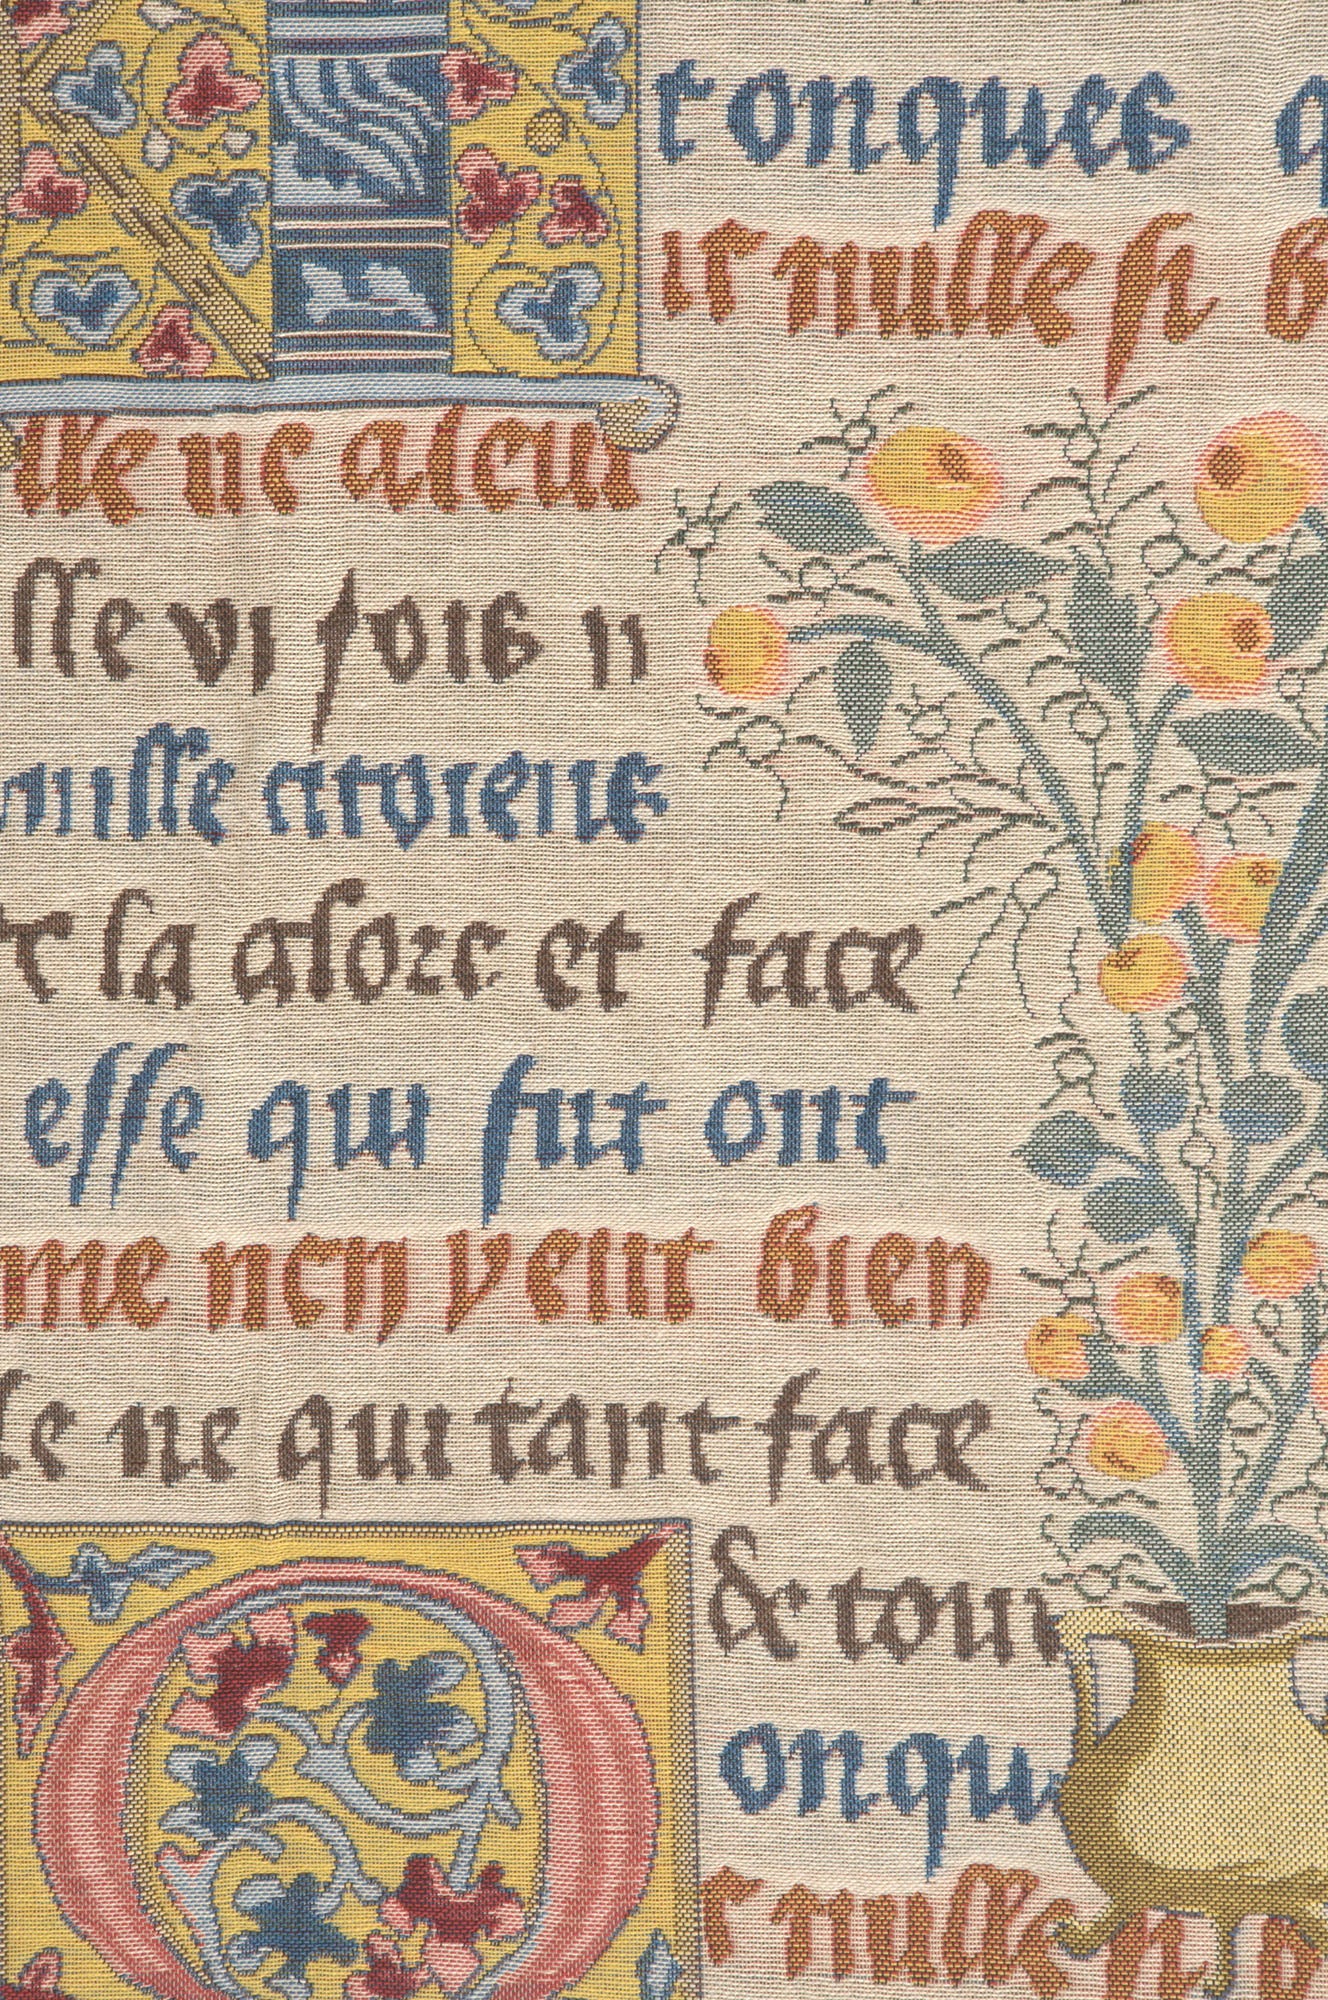 tonques
nulle si
ne aleu
elle vi fois
nulle citoiens
la alore et face
esse qui fut ont
me nen veut bien
le ne qui tant face
& tour
onqu
nulle si